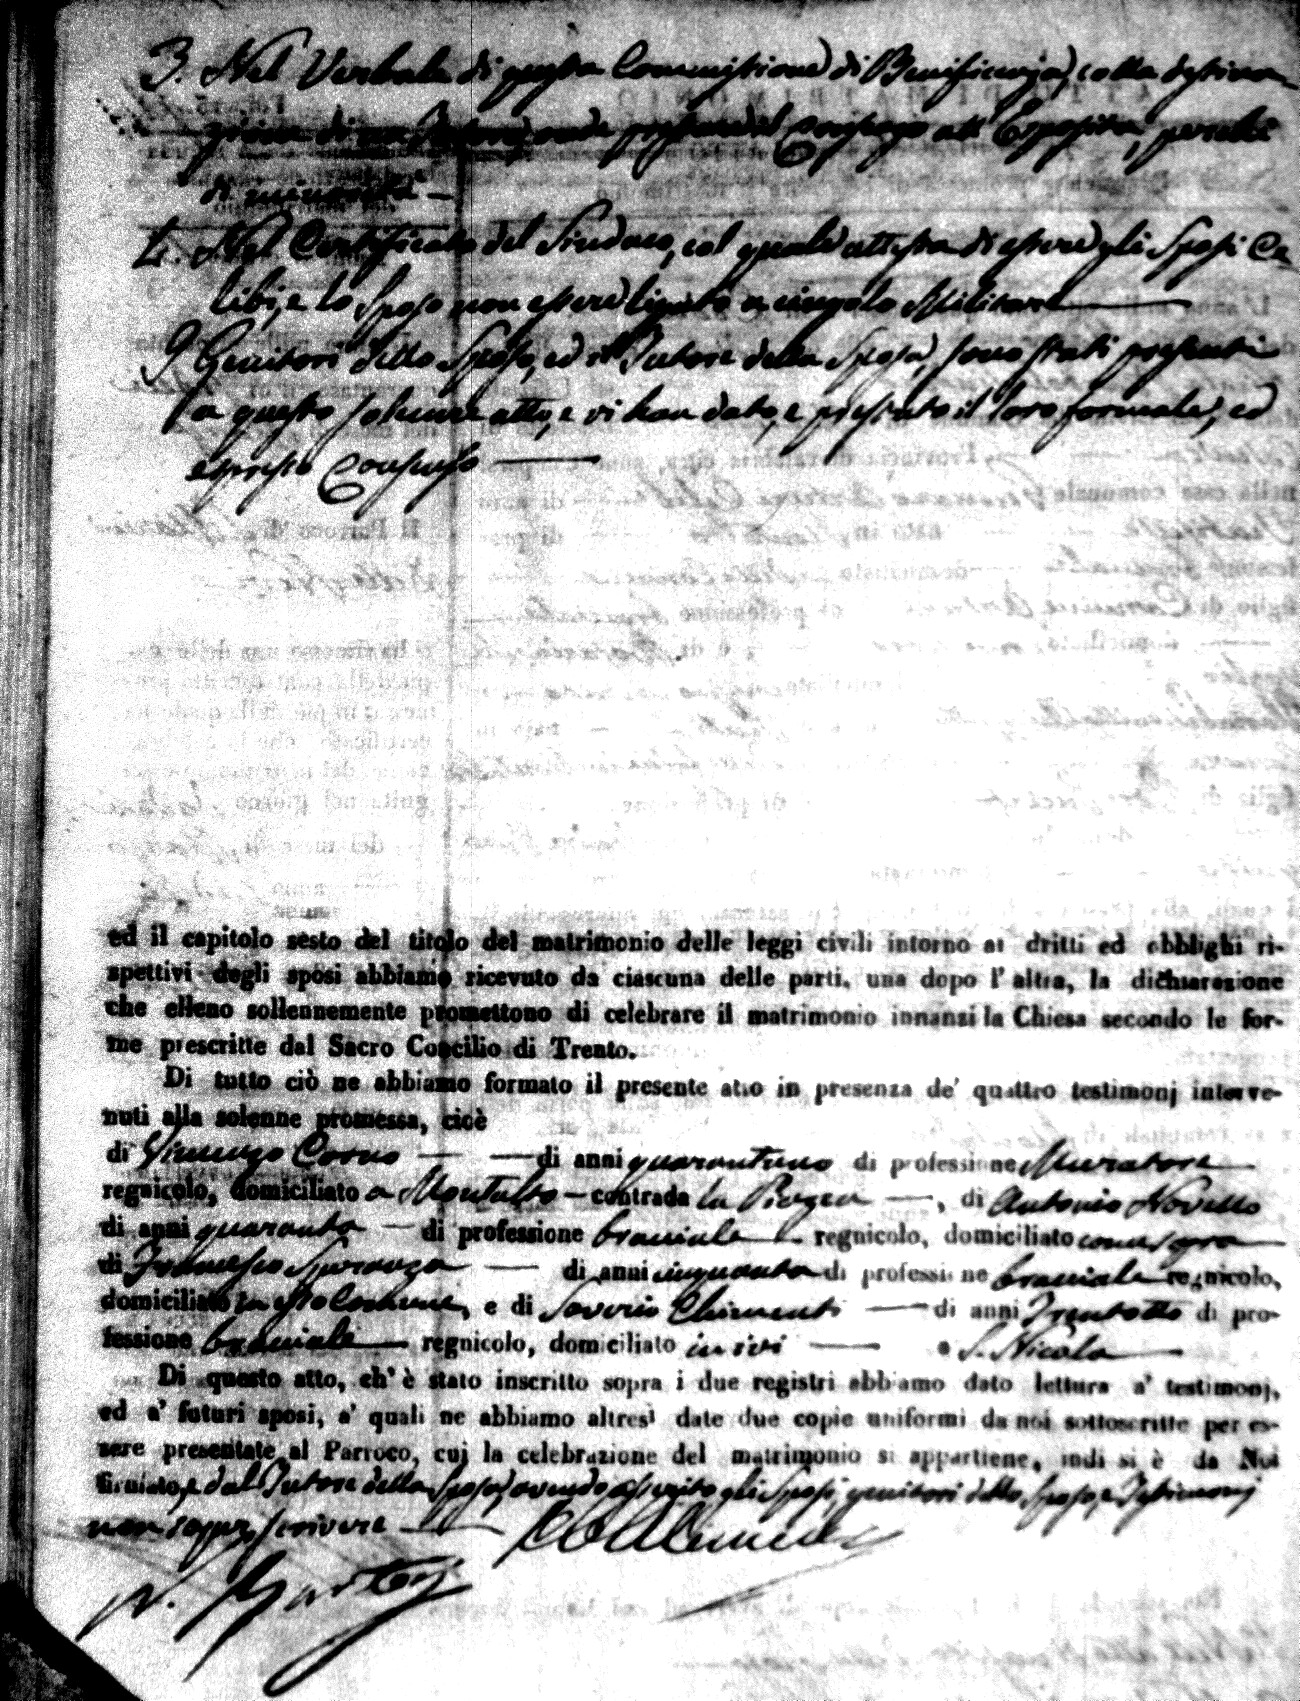 3. Nel Verbale di questa Commissione di Beneficenza, colla destina
zione di un Tutore onde prestare il Consenso all' Esposita, perchè
di minore età —
4. Nel Certificato del Sindaco, col quale attesta di essere gli Sposi Ce
libi, e lo Sposo non essere legato a cingolo Militare —
I Genitori dello Sposo, ed il Tutore della Sposa, sono stati presenti
a questo solenne atto, e vi han dato, e prestato il loro formale, ed
espresso Consenso —
ed il capitolo sesto del titolo del matrimonio delle leggi civili intorno ai dritti ed obblighi ri-
spettivi degli sposi abbiamo ricevuto da ciascuna delle parti, una dopo l' altra, la dichiarazione
che elleno sollennemente promettono di celebrare il matrimonio innanzi la Chiesa secondo le for-
me prescritte dal Sacro Concilio di Trento.
Di tutto ciò ne abbiamo formato il presente atto in presenza de' quattro testimonj interve-
nuti alla solenne promessa, cioè
di Vincenzo Corno — — di anni quarantuno di professione Muratore
regnicolo, domiciliato a Montalto — contrada la Piazza —, di Antonio Novello
di anni quaranta — di professione bracciale regnicolo, domiciliato come sopra
di Francesco Speranza — di anni cinquanta di professione bracciale regnicolo,
domiciliato in esso Comune, e di Saverio Chimenti — di anni Trentotto di pro-
fessione bracciale — regnicolo, domiciliato in ivi — a S. Nicola
Di questo atto, ch' è stato inscritto sopra i due registri abbiamo dato lettura a' testimonj,
ed a' futuri sposi, a' quali ne abbiamo altresì date due copie uniformi da noi sottoscritte per es-
sere presentate al Parroco, cui la celebrazione del matrimonio si appartiene, indi si è da Noi
firmato, e dal Tutore della Sposa, avendo asserito gli Sposi, genitori dello Sposo, e Testimonj
non saper scrivere —